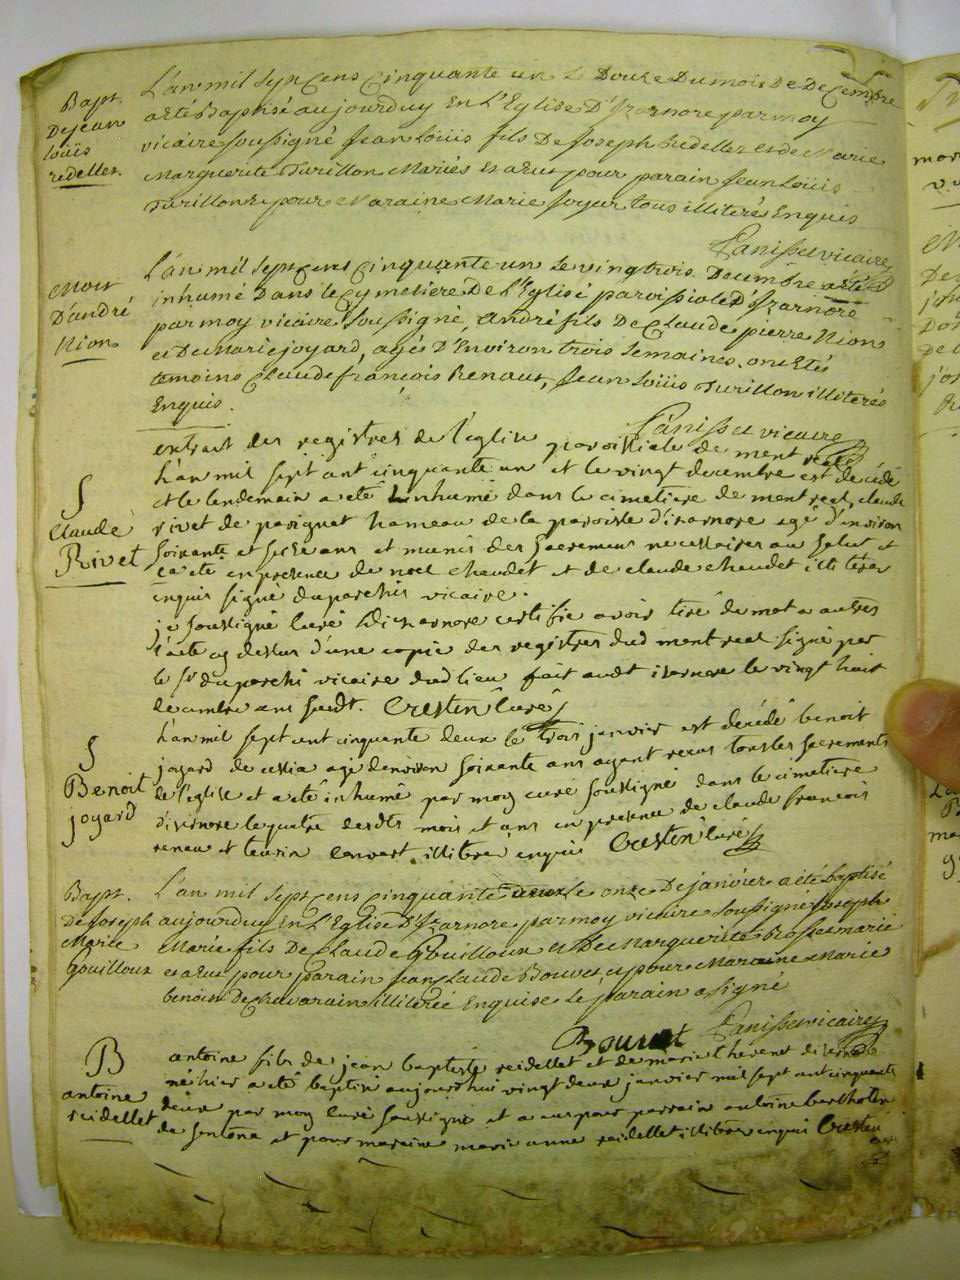 Bapt.
De jean
Loüis
redellet.
L'an mil sept Cens Cinquante un Le Douze Du mois de Decembre
a eté Baptisé aujourduy En L'Eglise D'Izarnore par moy
vicaire soussigné Jean Loüis fils De Joseph redellet et de Marie
Marguerite Turillon Mariés et a eu pour parain Jean Loüis
Turillon et pour Maraine Marie Joyar tous illiterés Enquis
Panisset vicaire
Mort
D'andré
Nion
L'an mil sept Cens Cinquante un Le vingtrois Decembre a eté
inhumé Dans le Cymetiere De L'Eglise paroissiale D'Izarnore
par moy vicaire soussigné, André fils De Claude pierre Nion
et De Marie joyard, agé D'Environ trois semaines. ont Etés
temoins Claude françois Renaut, Jean Loüis Turillon illiterés
Enquis.
Panisset vicaire
extrait des registres de l'eglise paroissiale de mentreal
S
Claude
Rivet
L'an mil sept cent cinquante un et le vingt decembre est decédé
et le lendemain a eté inhumé dans le cimetiere de montreal, claude
rivet de perignat hameau de la paroisse d'isarnore agé d'environ
soixante et seize ans et munis des sacremens necessaires au salut et
ça eté en presence de noel chaudet et de claude chaudet illiteres
enquis signé duparchis vicaire.
je soussigné curé d'isarnore certifie avoir tiré de mot a autres
l'acte cy dessus d'une copie des registres dud montreal signé par
le sr duparchi vicaire dud lieu fait audt isarnore le vingt huit
decembre ans susdt. Crestin curé
S
Benoit
joyard
L'an mil sept cent cinquante deux le trois janvier est decédé benoit
joyard de cessia agé denviron soixante ans ayant recus tous les sacrements
de l'eglise et a eté inhumé par moy curé soussigné dans le cimetiere
d'isernore le quatre desdts mois et ans en presence de claude francois
renau et illiteres enquis Crestin curé
Bapt.
De joseph
Marie
gouilloux
L'an mil sept Cens Cinquante deux Le onze De janvier a eté baptisé
aujourduy En L'Eglise D'Izarnore par moy vicaire soussigné joseph
Marie fils De Claude Gouilloux et De Marguerite Rosset mariés
et a eu pour parain jean Claude Bouvet et pour Maraine Marie
benoit De Chavarain illiterée Enquise Le parain a signé
Bouvet Panisset vicaire
B
antoine
reidellet
antoine fils de jean baptiste reidellet et de marie thevenet d'isernore
né hier a eté baptisé aujourd'hui vingt deux janvier mil sept cent cinquante
deux par moy curé soussigné et a eu pour parrain antoine berthelen
de sentona et pour maraine marie anne reidellet illiteres enquis Crestin
curé